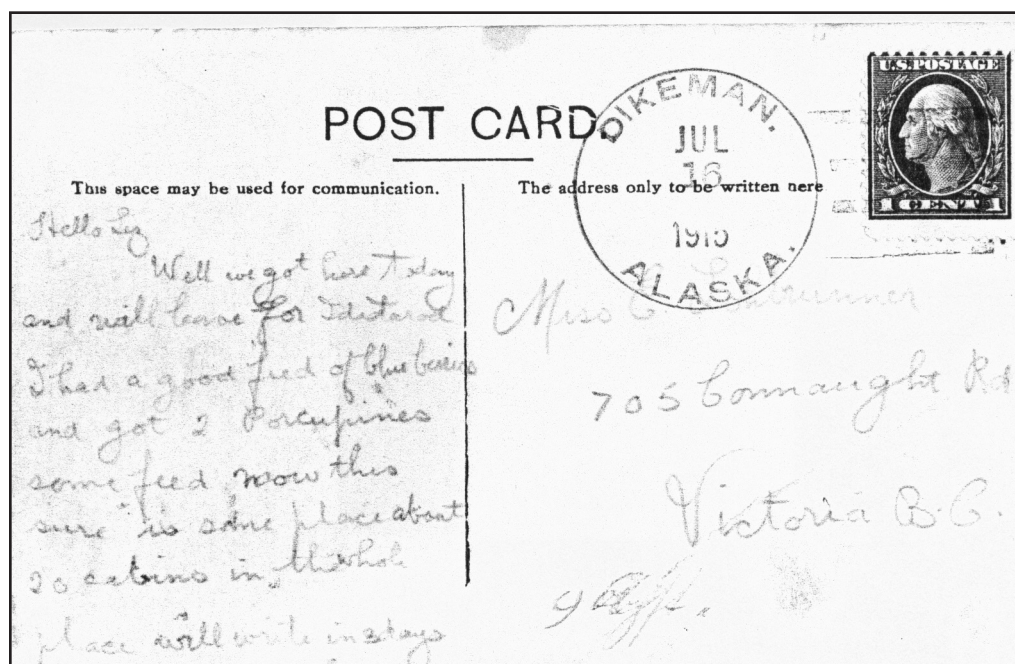 POST CARD.
This space may be used for communication.
The address only to be written here
DIKEMAN.
JUL
16
1915
ALASKA.
U.S. POSTAGE
1 CENT 1
Hello Liz
Well we got here today
and will leave for Iditarod
I had a good feed of blueberries
and got 2 Porcupines
some feed now this
sure is some place about
20 cabins in the whole
place will write in 3 days
Miss
705 Connaught Rd
Victoria B.C.